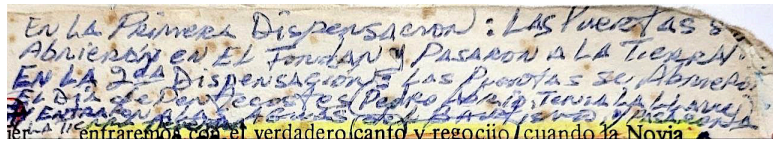 EN LA PRIMERA DISPENSACION: LAS PUERTAS S
ABRIERON EN EL JORDAN Y PASARON A LA TIERRA.
EN LA 2da DISPENSACION: LAS PUERTAS SE ABRIERO
EL DIA de PENTECOSTES (PEDRO ABRIO, TENIA LA LLAVE)
Y ENTRARON A LAS AGUAS DEL BAUTISMO Y
LA TIERRA
entraremos con el verdadero canto y regocijo, cuando la Novia